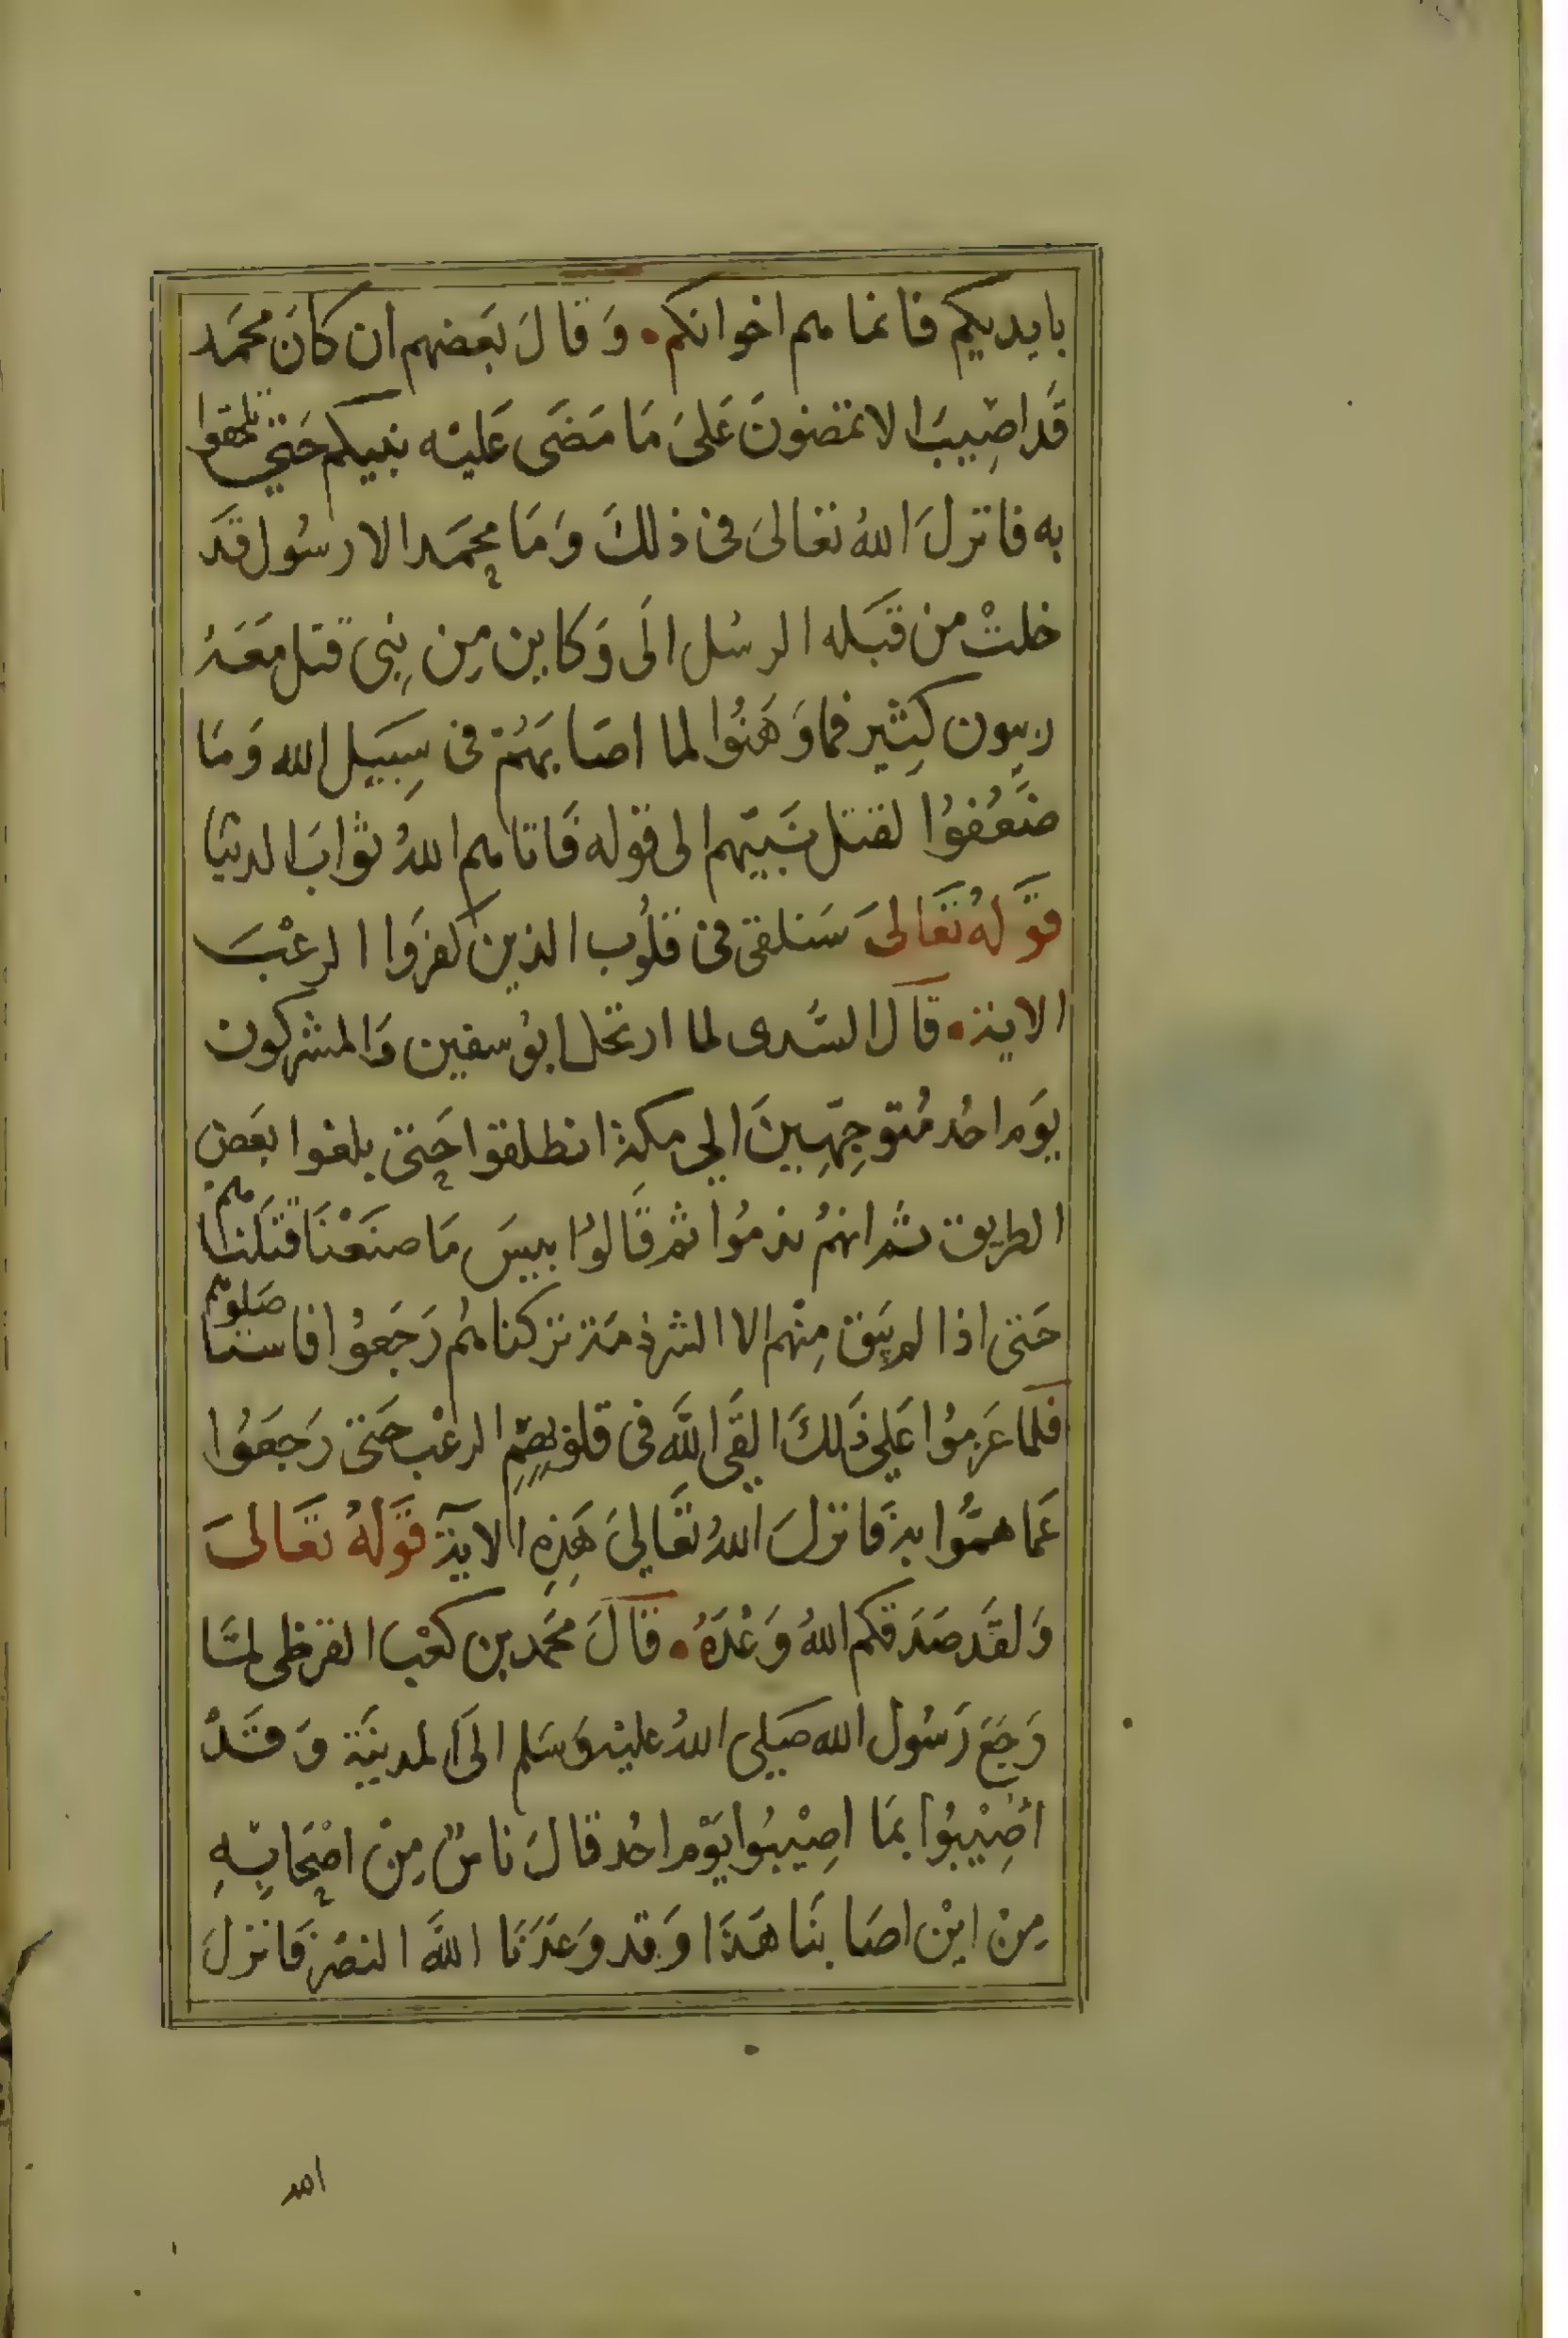 بايديكم فانما هم اخوانكم. وَقالَ بَعضهم ان كانَ محمَد
قَد اصِيبَ الا تمضونَ عَلىَ مَا مَضَى عَليْه نبيكم حَتي تلحقوا
به فانزلَ اللهُ تعالىَ فى ذلكَ وَمَا محمَد الا رسُول قَد
خلتْ من قبَله الرسُل الَى وَكاين مِن نِبى قتل مَعَهُ
ربيون كِثير فما وَهَنُوا لما اصَابهَمُ فى سِبيَل الله وَمَا
ضَعُفوُا لقتل نَبيّهم الى قوله فَاتاهم اللهُ ثوابَ الدنيَا
قوَلهُ تعَالىَ سَنلقى فى قلُوب الذين كفرَوا الرعْبَ
الاية. قال السَّدى لما ارتحل ابوُ سفين وَالمشركون
يوَم احُد مُتوجِهّينَ الي مكة انطلقوا حَتى بلغوا بعَض
الطريق ثمَ انهمُ ندموُا ثم قَالوُا بيسَ مَا صنَعْنَا قتَلنا هم
حَتى اذا لم يَبق مِنْهم الا الشرذمَة تركناهُم رَجَعوُا فاستا صَلوهم
فلما عَزموُا عَلي ذَلكَ القَى اللَّه فى قلوبهِمِ الرعْب حَتى رَجَعوُا
عَما همُّوا به فَانزلَ اللهُ تعَاليَ هَذِهِ الايَة قوَلهُ تعَالىَ
وَلقَد صَدَقكم اللهُ وَعْدَهُ. قالَ محَمد بن كعْبَ القرظى لمَّا
رَجَعَ رَسُول الله صَلي اللهُ عليْه وَسَلم الىَ المدينَة وَقَدْ
اصُيْبوُا بمَا اصِيْبُوا يوْم احُد قالَ ناسٌ مِنْ اصْحَابِهِ
مِنْ ايْن اصَابنَا هَذَا وَقد وَعَدَنَا اللَّه النصْر فَانزلَ
الله